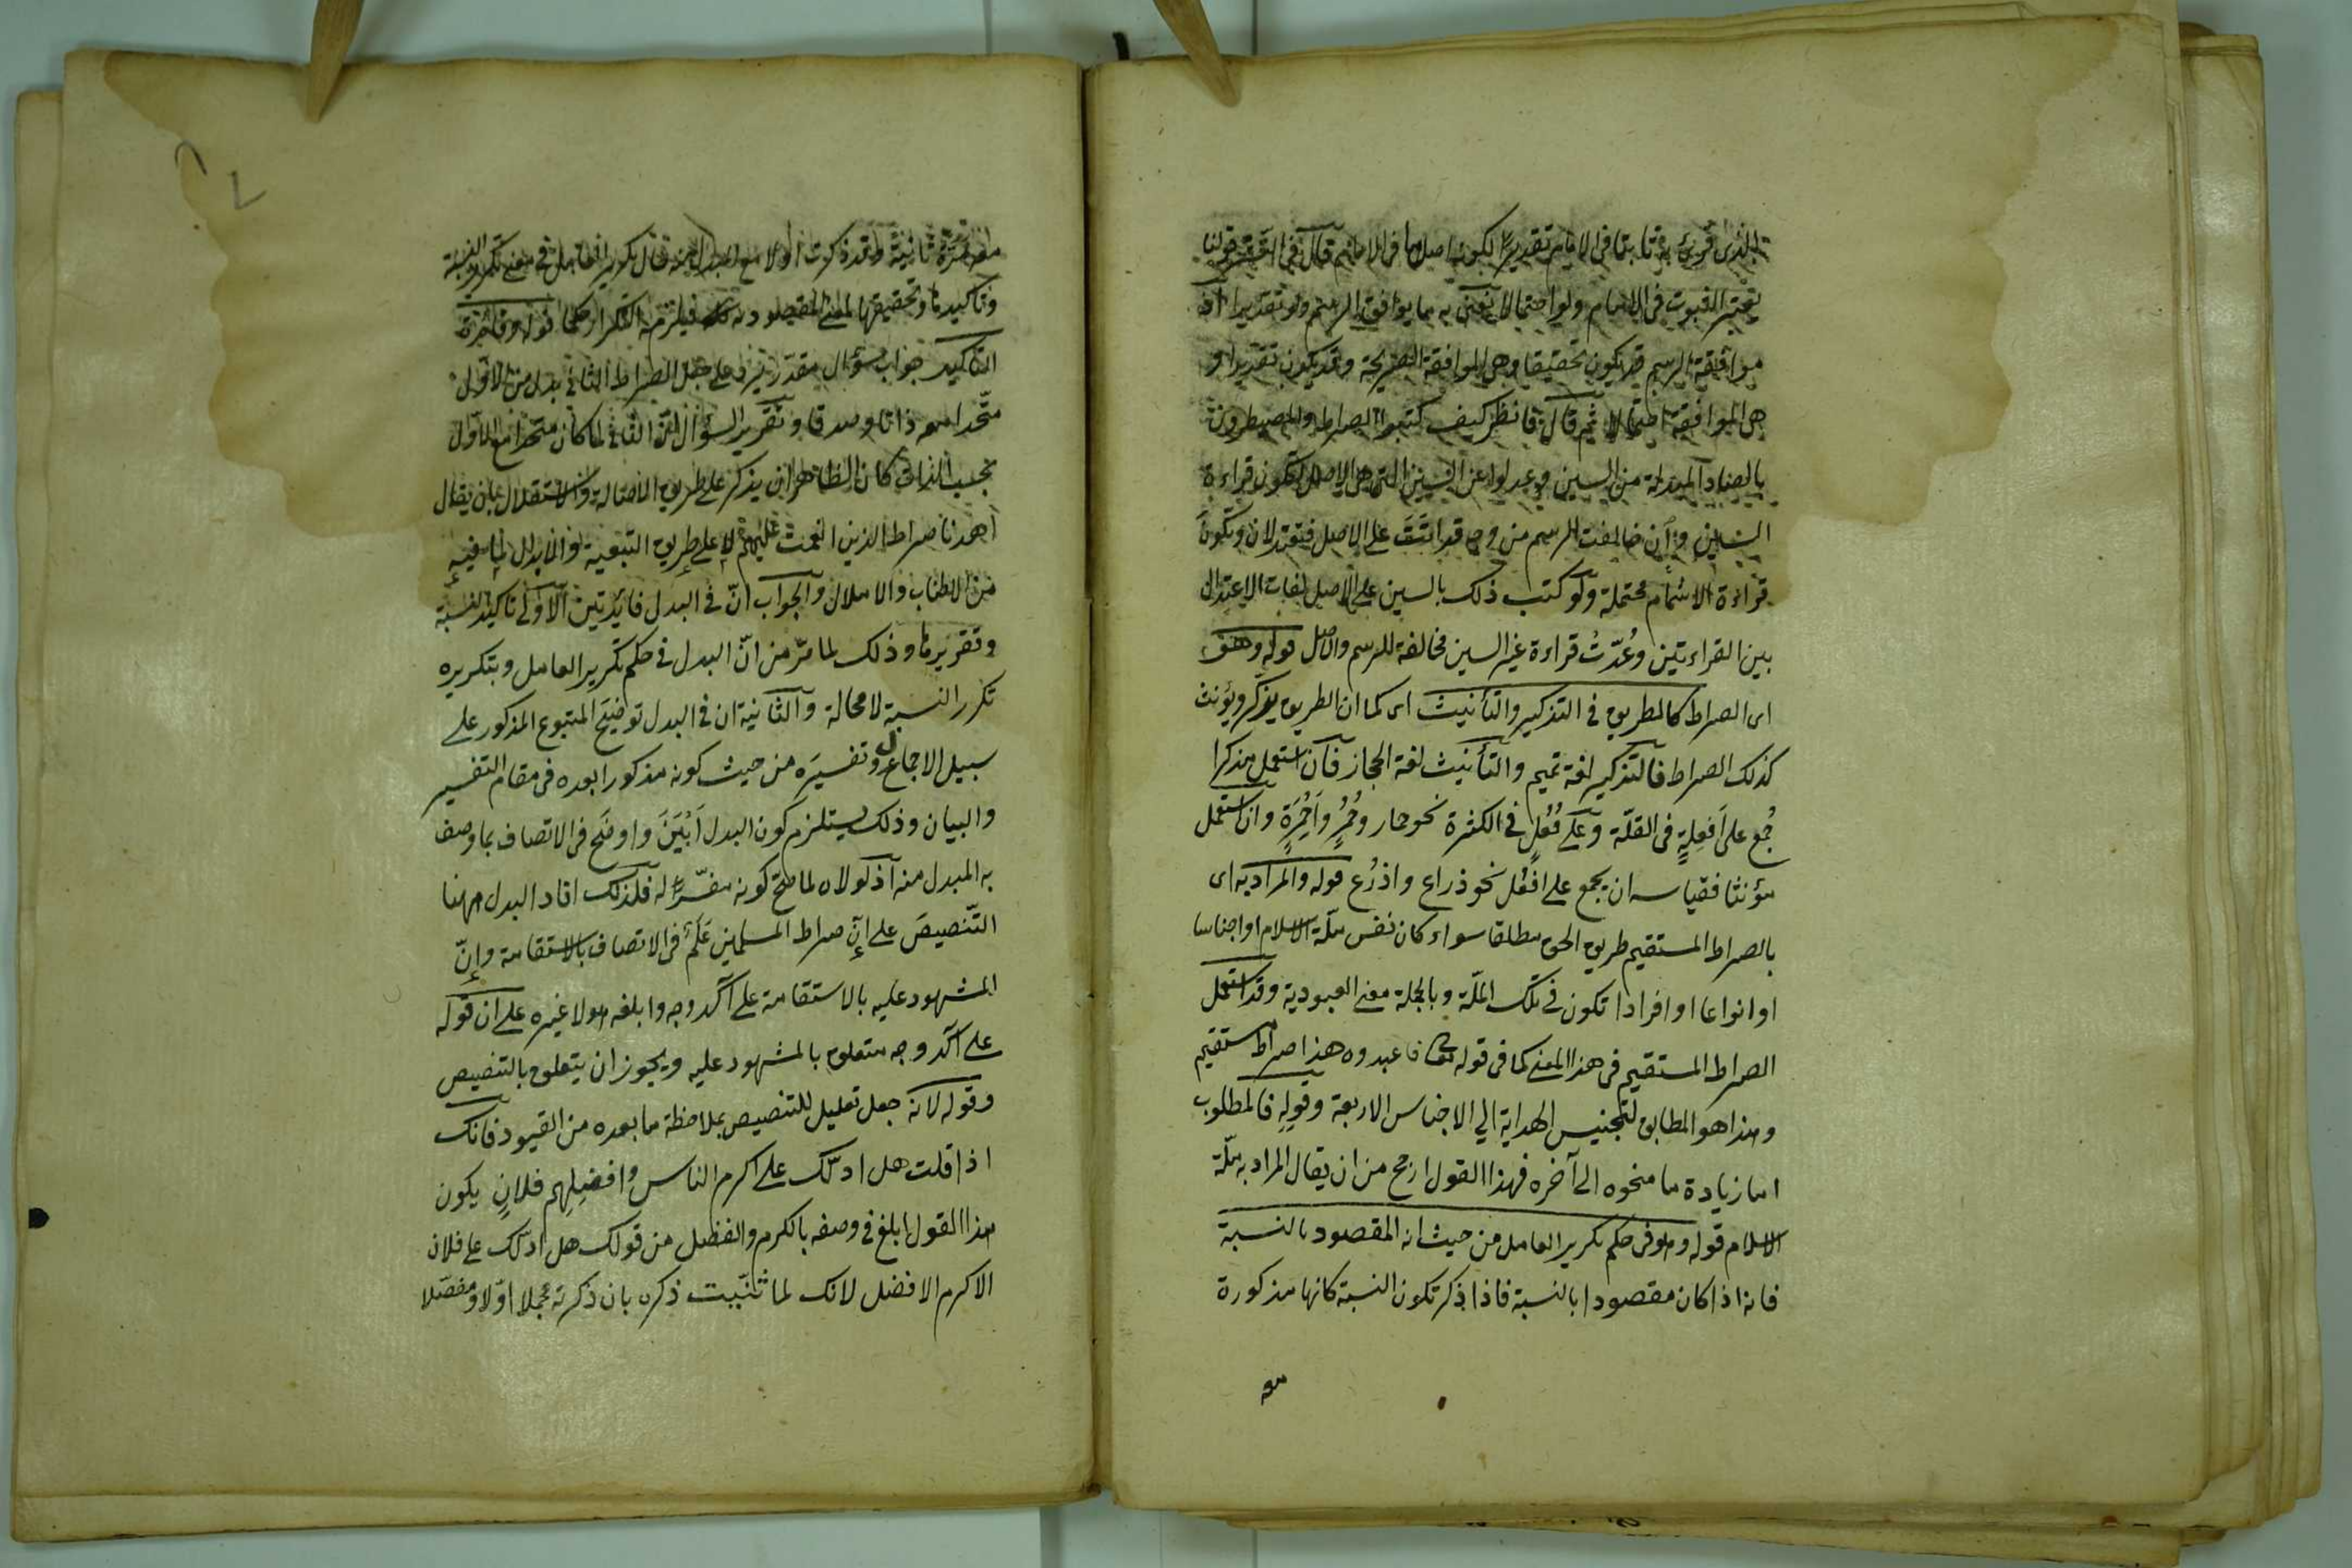 الذى قرئ به ثابتا فى الامام تقديرا لكونها اصلها فى الامام ثم قال فى النشر قولنا
نعتبر الثبوت فى الامام ولو احتمالا نعنى به ما يوافق الرسم ولو تقديرا اذ
موافقة الرسم قد يكون تحقيقا وهى الموافقة الصريحة وقد يكون تقديرا و
هى الموافقة احتمالا ثم قال فانظر كيف كتبوا الصراط والمصيطرون
بالصاد المبدلة من السين وعدلوا عن السين التى هى الاصل لتكون قراءة
السين وان خالفت الرسم من وجه قد اتت على الاصل فيعتدلان وتكون
قراءة الاشمام محتملة ولو كتب ذلك بالسين على الاصل لفات الاعتدال
بين القراءتين وعُدّت قراءة غير السين مخالفة للرسم والاصل قوله وهو
اى الصراط كالطريق فى التذكير والتأنيث اى كما ان الطريق يذكر ويؤنث
كذلك الصراط فالتذكير لغة تميم والتأنيث لغة الحجاز فان استعمل مذكرا
جُمع على اَفعِلةٍ فى القلّة وعلى فُعُلٍ فى الكثرة نحو حمار وحُمُرٍ واَحمِرَةٍ وان استعمل
مؤنثا فقياسه ان يجمع على افعُل نحو ذراع واذرُع قوله والمراد به اى
بالصراط المستقيم طريق الحق مطلقا سواء كان نفس ملّة الاسلام او اجناسا
او انواعا او افرادا تكون فى تلك الملّة وبالجملة معنى العبودية وقد استعمل
الصراط المستقيم فى هذا المعنى كما فى قوله تعالى فاعبدوه هذا صراط مستقيم
وهذا هو المطابق لتجنيس الهداية الى الاجناس الاربعة وقوله فالمطلوب
اما زيادة ما منحوه الى آخره فهذا القول ارجح من ان يقال المراد به ملّة
الاسلام قوله وهو فى حكم تكرير العامل من حيث انه المقصود بالنسبة
فانه اذا كان مقصودا بالنسبة فاذا ذكر تكون النسبة كانها مذكورة
مرة ثانية وقد ذكرت اولا مع المبدل منه قال تكرير العامل فى معنى تكرير النسبة
وتأكيدها وتحقيقها لمعنى المقصود به فيلزمه التكرار كما قوله وفائدته
التأكيد جواب سؤال مقدر يرد على جعل الصراط الثانى بدلا من الاول
متّحدا معه ذاتا وصدقا وتقرير السؤال انّ الثانى لما كان متحدا مع الاول
بحسب الذات كان الظاهر ان يذكر على طريق الاصالة والاستقلال بان يقال
اهدنا صراط الذين انعمت عليهم لا على طريق التبعية والابدال لما فيه
من الاطناب والاملال والجواب انّ فى البدل فائدتين الاولى تاكيد النسبة
وتقريرها وذلك لما مرّ من انّ البدل فى حكم تكرير العامل وبتكريره
تكرر النسبة لا محالة والثانية ان فى البدل توضيح المتبوع المذكور على
سبيل الاجمال وتفسيره من حيث كونه مذكورا بعده فى مقام التفسير
والبيان وذلك يستلزم كون البدل اَبْيَنَ واوضَح فى الاتصاف بما وصف
به المبدل منه اذ لولاه لما صح كونه مفسّرا له فلذلك افاد البدل ههنا
التنصيصَ على اَنّ صراط المسلمين عَلَم فى الاتصاف بالاستقامة واِنّ
المشهود عليه بالاستقامة على آكد وجه وابلغه هو لا غيره على ان قوله
على آكد وجه متعلق بالمشهود عليه ويجوز ان يتعلق بالتنصيص
وقوله لانه جعل تعليل للتنصيص بملاحظة ما بعده من القيود فانك
اذا قلت هل ادلّك على اكرم الناس وافضلِهم فلانٍ يكون
هذا القول ابلغ فى وصفه بالكرم والفضل من قولك هل ادلك على فلان
الاكرم الافضل لانك لما ثنّيت ذكره بان ذكرته مجملا اوّلا ومفصّلا